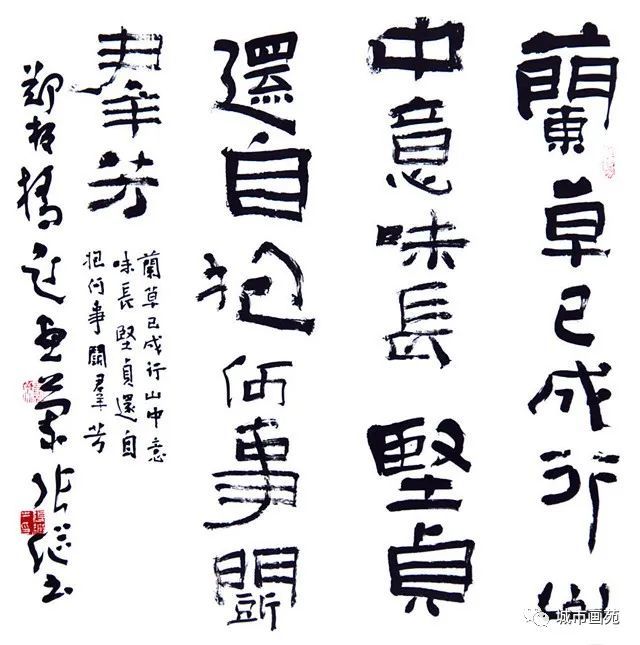 蘭草已成行山
中意味長堅貞
還自抱何事鬭
羣芳
蘭草已成行山中意
味長堅貞還自
抱何事鬭羣芳
鄭板橋题画蘭 张继书
城市画苑